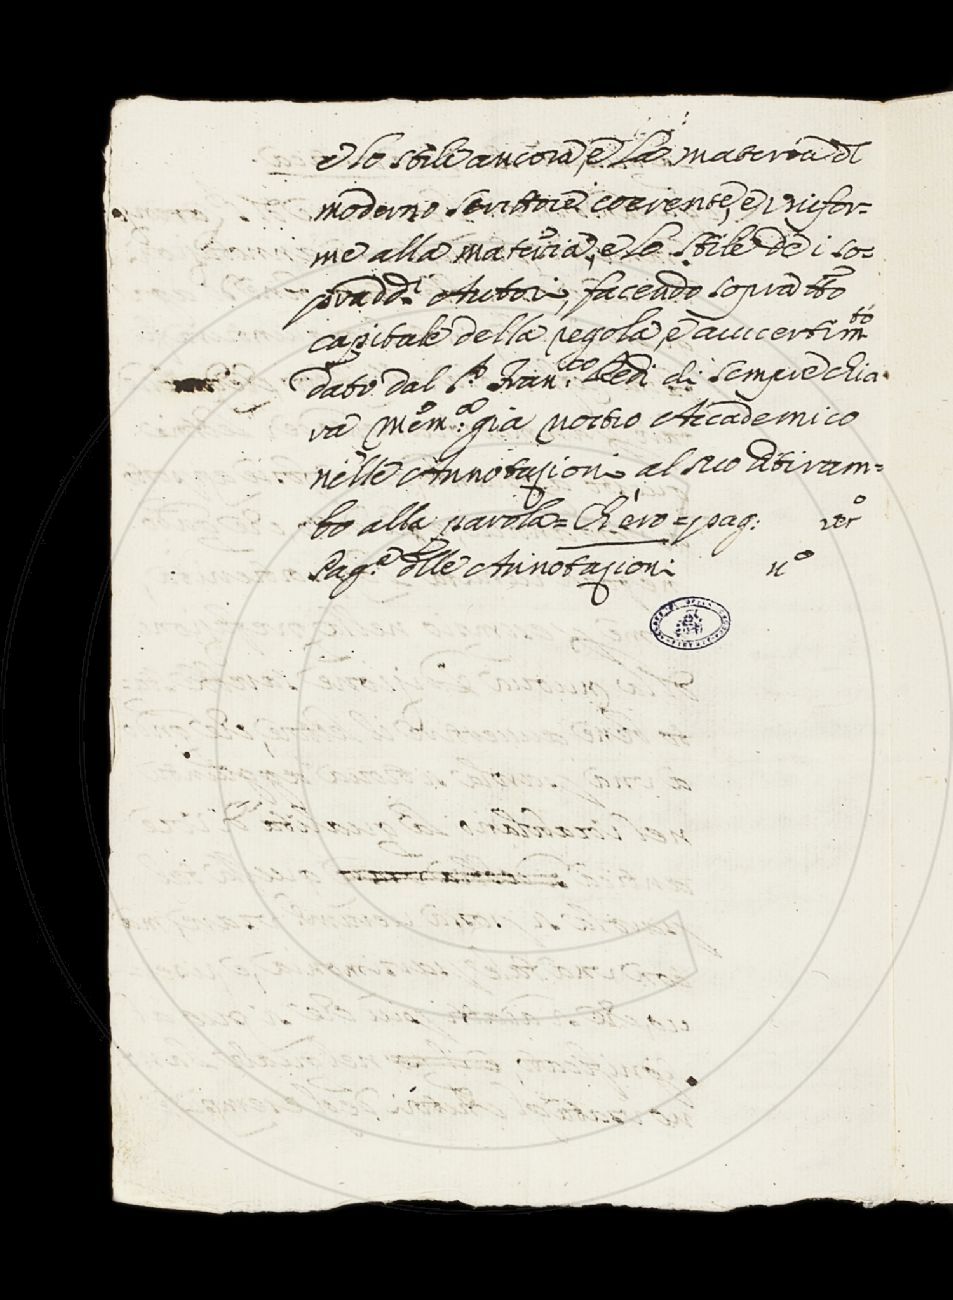 e lo stile ancora, e la materia dl
moderno scrittore coerente, e unifor=
me alla materia, e lo stile de i so=
pradd.i Autori, facendo sopra tto
capitale della regola, e auuertim.to
dato dal S.r Fran.co Redi di sempre chia
ra mem.a già nostro Accademico
nelle Annotazioni al suo ditiram=
bo alla parola= Ch'ero =pag: ver
Pag.e dlle Annotazioni n.o